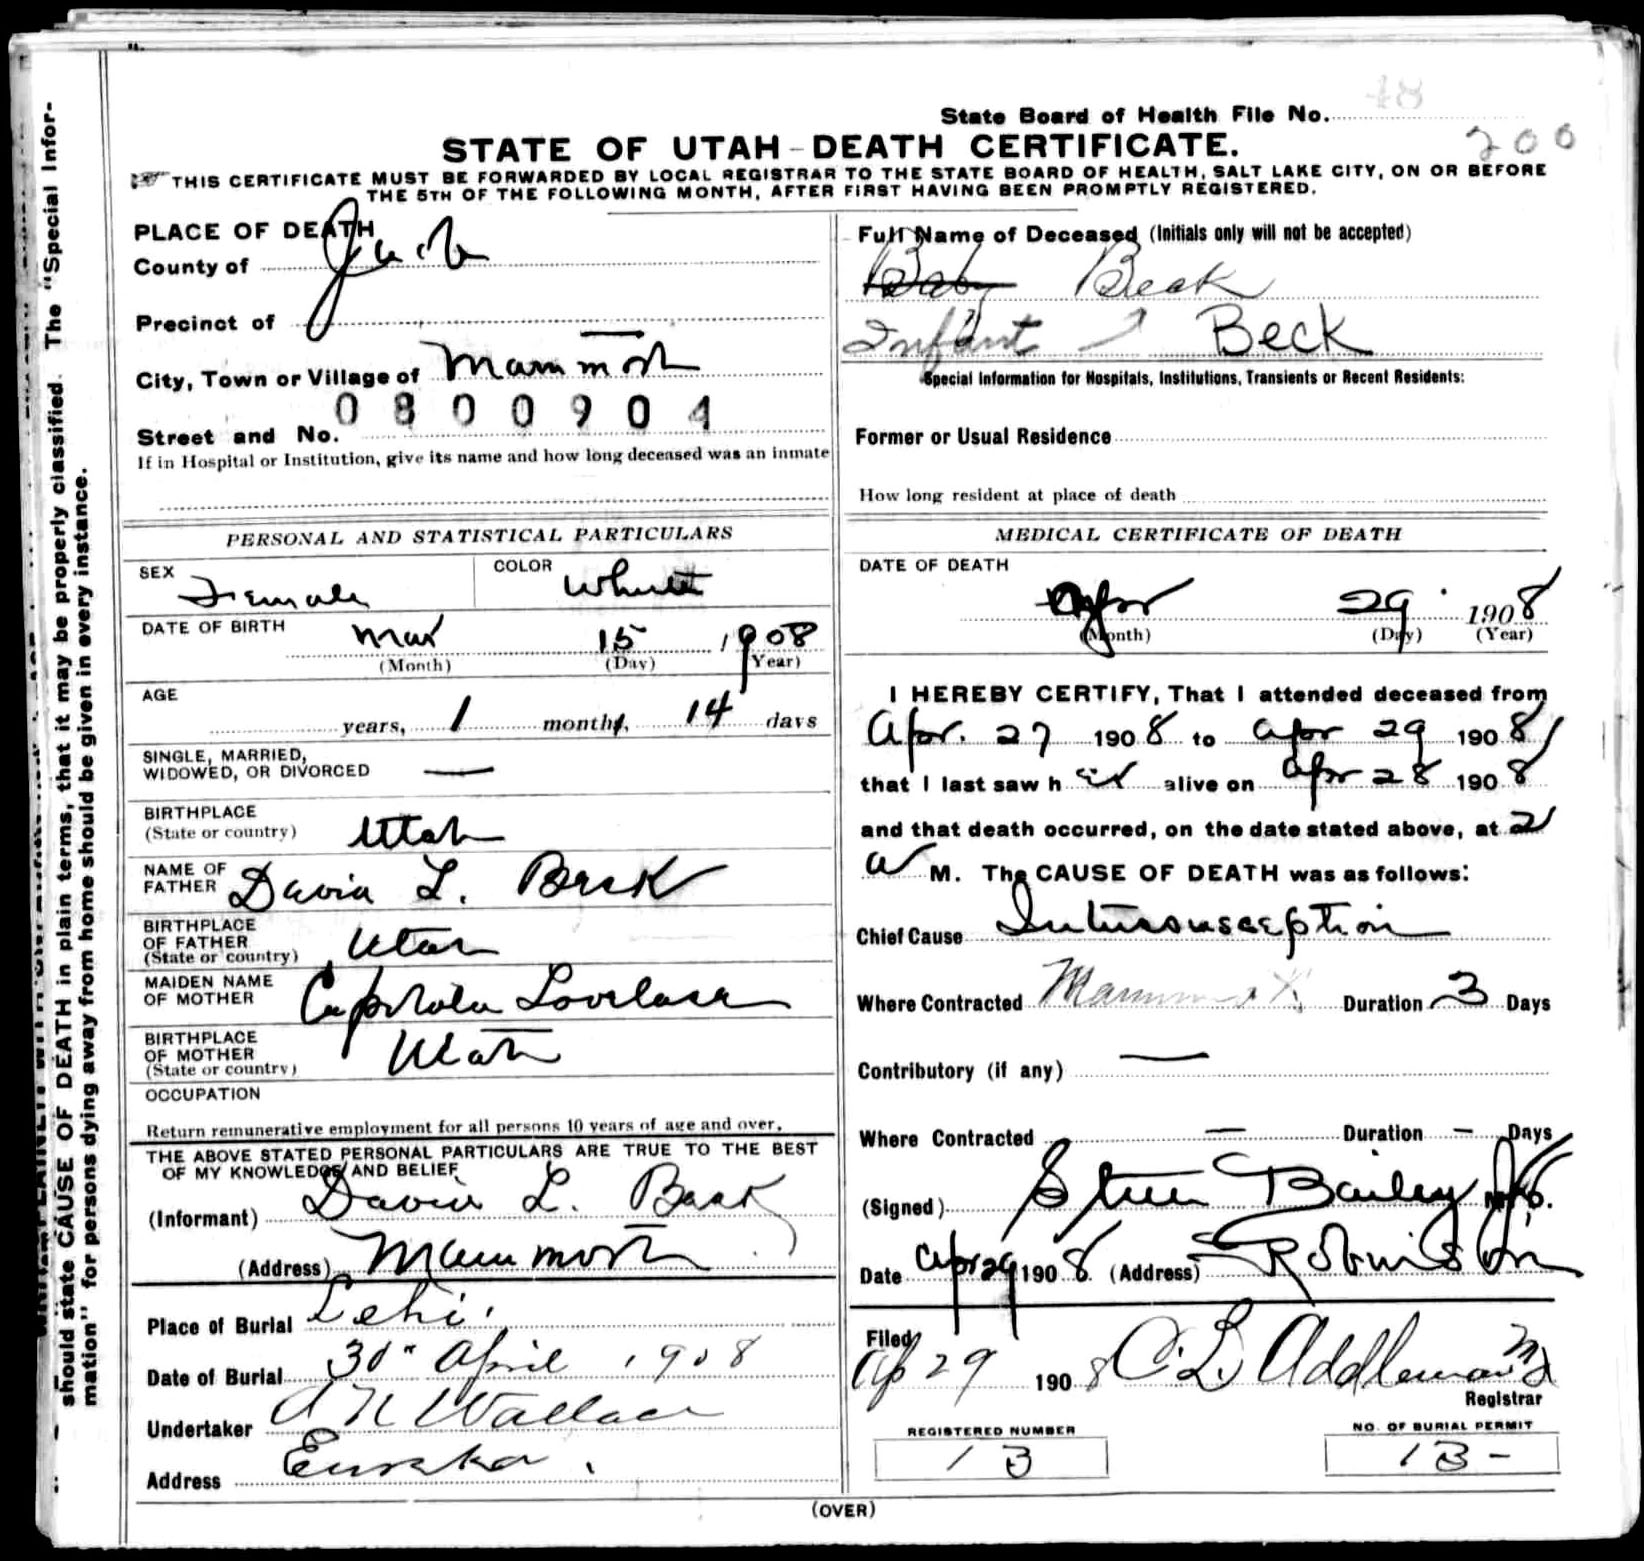 State Board of Health File No. 48
200
STATE OF UTAH - DEATH CERTIFICATE.
THIS CERTIFICATE MUST BE FORWARDED BY LOCAL REGISTRAR TO THE STATE BOARD OF HEALTH, SALT LAKE CITY, ON OR BEFORE
THE 5TH OF THE FOLLOWING MONTH, AFTER FIRST HAVING BEEN PROMPTLY REGISTERED.
should state CAUSE OF DEATH in plain terms, that it may be properly classified. The "Special Infor-
mation" for persons dying away from home should be given in every instance.
PLACE OF DEATH
County of Juab
Precinct of
City, Town or Village of Mammoth
0800904
Street and No.
If in Hospital or Institution, give its name and how long deceased was an inmate
PERSONAL AND STATISTICAL PARTICULARS
SEX Female COLOR White
DATE OF BIRTH Mar 15 1908
(Month) (Day) (Year)
AGE
years, 1 month, 14 days
SINGLE, MARRIED,
WIDOWED, OR DIVORCED —
BIRTHPLACE
(State or country) Utah
NAME OF
FATHER David L. Beck
BIRTHPLACE
OF FATHER
(State or country) Utah
MAIDEN NAME
OF MOTHER Capitola Lovelace
BIRTHPLACE
OF MOTHER
(State or country) Utah
OCCUPATION
Return remunerative employment for all persons 10 years of age and over.
THE ABOVE STATED PERSONAL PARTICULARS ARE TRUE TO THE BEST
OF MY KNOWLEDGE AND BELIEF
(Informant) David L. Beck
(Address) Mammoth
Place of Burial Lehi.
Date of Burial 30" April 1908
Undertaker A N Wallace
Address Eureka.
Full Name of Deceased (Initials only will not be accepted)
Baby Beck
Infant Beck
Special Information for Hospitals, Institutions, Transients or Recent Residents:
Former or Usual Residence
How long resident at place of death
MEDICAL CERTIFICATE OF DEATH
DATE OF DEATH
Apr 29 1908
(Month) (Day) (Year)
I HEREBY CERTIFY, That I attended deceased from
Apr. 27 1908 to Apr 29 1908
that I last saw her alive on Apr 28 1908
and that death occurred, on the date stated above, at 2
a M. The CAUSE OF DEATH was as follows:
Chief Cause Intussusception
Where Contracted Mammoth Duration 3 Days
Contributory (if any) —
Where Contracted — Duration — Days
(Signed) Steele Bailey Jr M.D.
Date Apr 29 1908 (Address) Robinson
Filed
Ap 29 1908 C. L. Addleman M D
Registrar
REGISTERED NUMBER
13
NO. OF BURIAL PERMIT
13 -
(OVER)